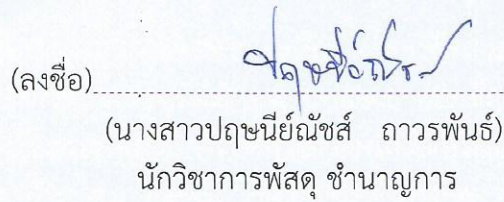 (ลงชื่อ)
(นางสาวปฤษนีย์ณัชส์ ถาวรพันธ์)
นักวิชาการพัสดุ ชำนาญการ